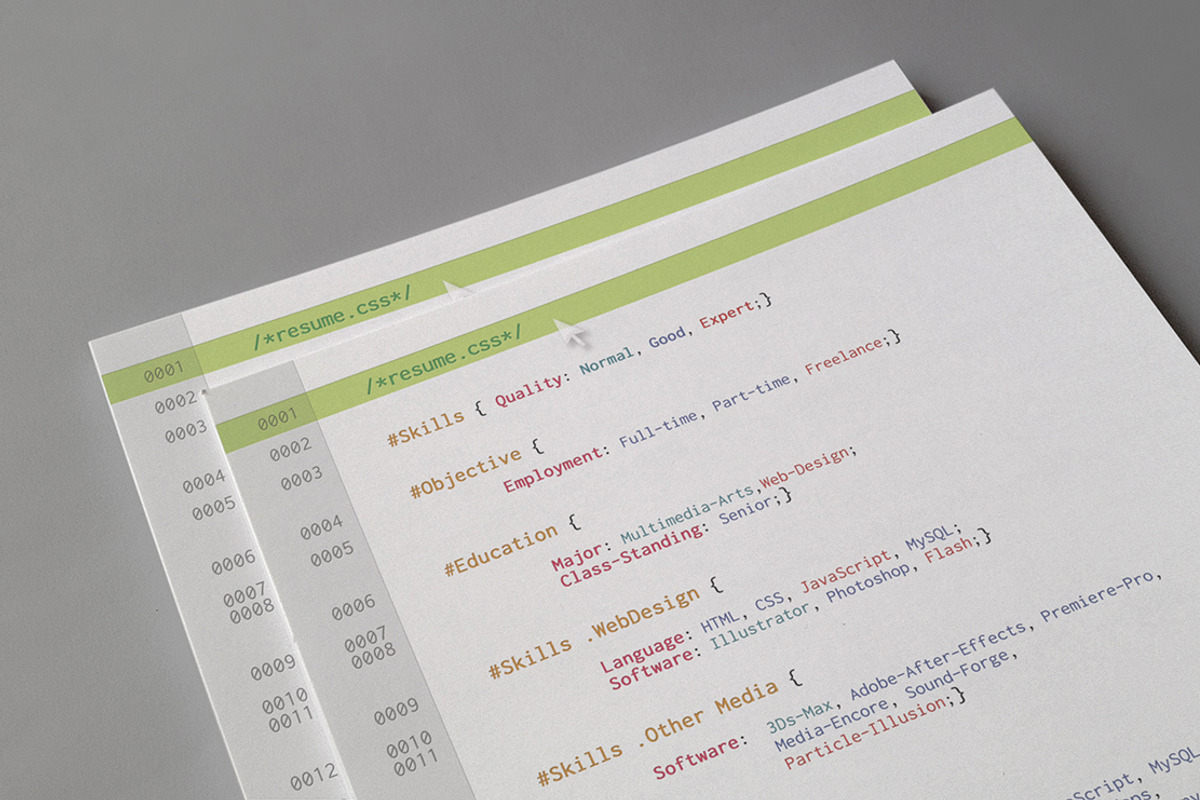 /*resume.css*/
0001
0002
0003
0004
0005
0006
0007
0008
0009
0010
0011
0012
/*resume.css*/
0001
0002
0003
0004
0005
0006
0007
0008
0009
0010
0011
#Skills { Quality: Normal, Good, Expert;}
#Objective {
Employment: Full-time, Part-time, Freelance;}
#Education {
Major: Multimedia-Arts,Web-Design;
Class-Standing: Senior;}
#Skills .WebDesign {
Language: HTML, CSS, JavaScript, MySQL;
Software: Illustrator, Photoshop, Flash;}
#Skills .Other Media {
Software: 3Ds-Max, Adobe-After-Effects, Premiere-Pro,
Media-Encore, Sound-Forge,
Particle-Illusion;}
MySQL